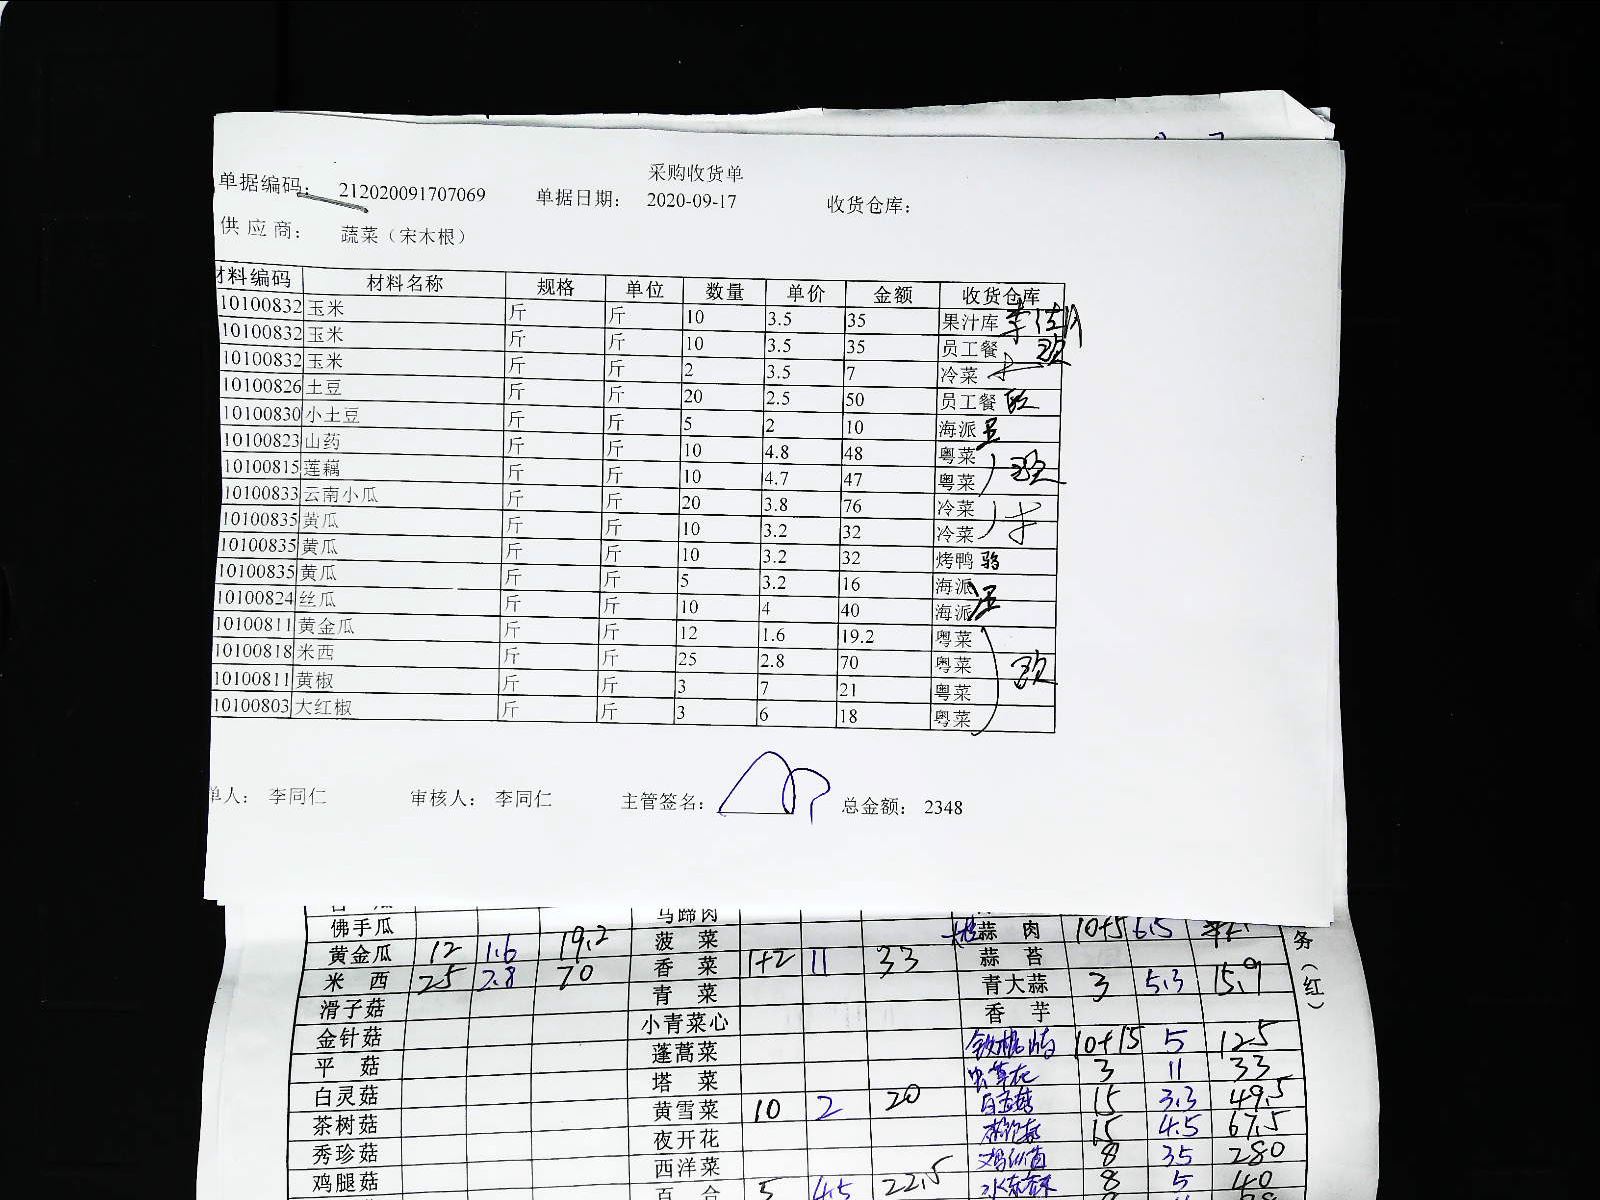 采购收货单
单据编码： 212020091707069 单据日期： 2020-09-17 收货仓库：
供应商： 蔬菜（宋木根）
材料编码 材料名称 规格 单位 数量 单价 金额 收货仓库
10100832 玉米 斤 斤 10 3.5 35 果汁库
10100832 玉米 斤 斤 10 3.5 35 员工餐
10100832 玉米 斤 斤 2 3.5 7 冷菜
10100826 土豆 斤 斤 20 2.5 50 员工餐
10100830 小土豆 斤 斤 5 2 10 海派
10100823 山药 斤 斤 10 4.8 48 粤菜
10100815 莲藕 斤 斤 10 4.7 47 粤菜
10100833 云南小瓜 斤 斤 20 3.8 76 冷菜
10100835 黄瓜 斤 斤 10 3.2 32 冷菜
10100835 黄瓜 斤 斤 10 3.2 32 烤鸭
10100835 黄瓜 斤 斤 5 3.2 16 海派
10100824 丝瓜 斤 斤 10 4 40 海派
10100811 黄金瓜 斤 斤 12 1.6 19.2 粤菜
10100818 米西 斤 斤 25 2.8 70 粤菜
10100811 黄椒 斤 斤 3 7 21 粤菜
10100803 大红椒 斤 斤 3 6 18 粤菜
单人： 李同仁 审核人： 李同仁 主管签名： 总金额： 2348
马蹄肉
佛手瓜 菠菜 蒜肉 10+5 6.5
黄金瓜 12 1.6 19.2 香菜 1+2 11 33 蒜苔
米西 25 2.8 70 青菜 青大蒜 3 5.3 15.9
滑子菇 小青菜心 香芋
金针菇 蓬蒿菜 10+15 5 125
平菇 塔菜 虫草花 3 11 33
白灵菇 黄雪菜 10 2 20 白玉菇 15 3.3 49.5
茶树菇 夜开花 15 4.5 67.5
秀珍菇 西洋菜 8 35 280
鸡腿菇 百合 5 4.5 22.5 8 5 40
务（红）